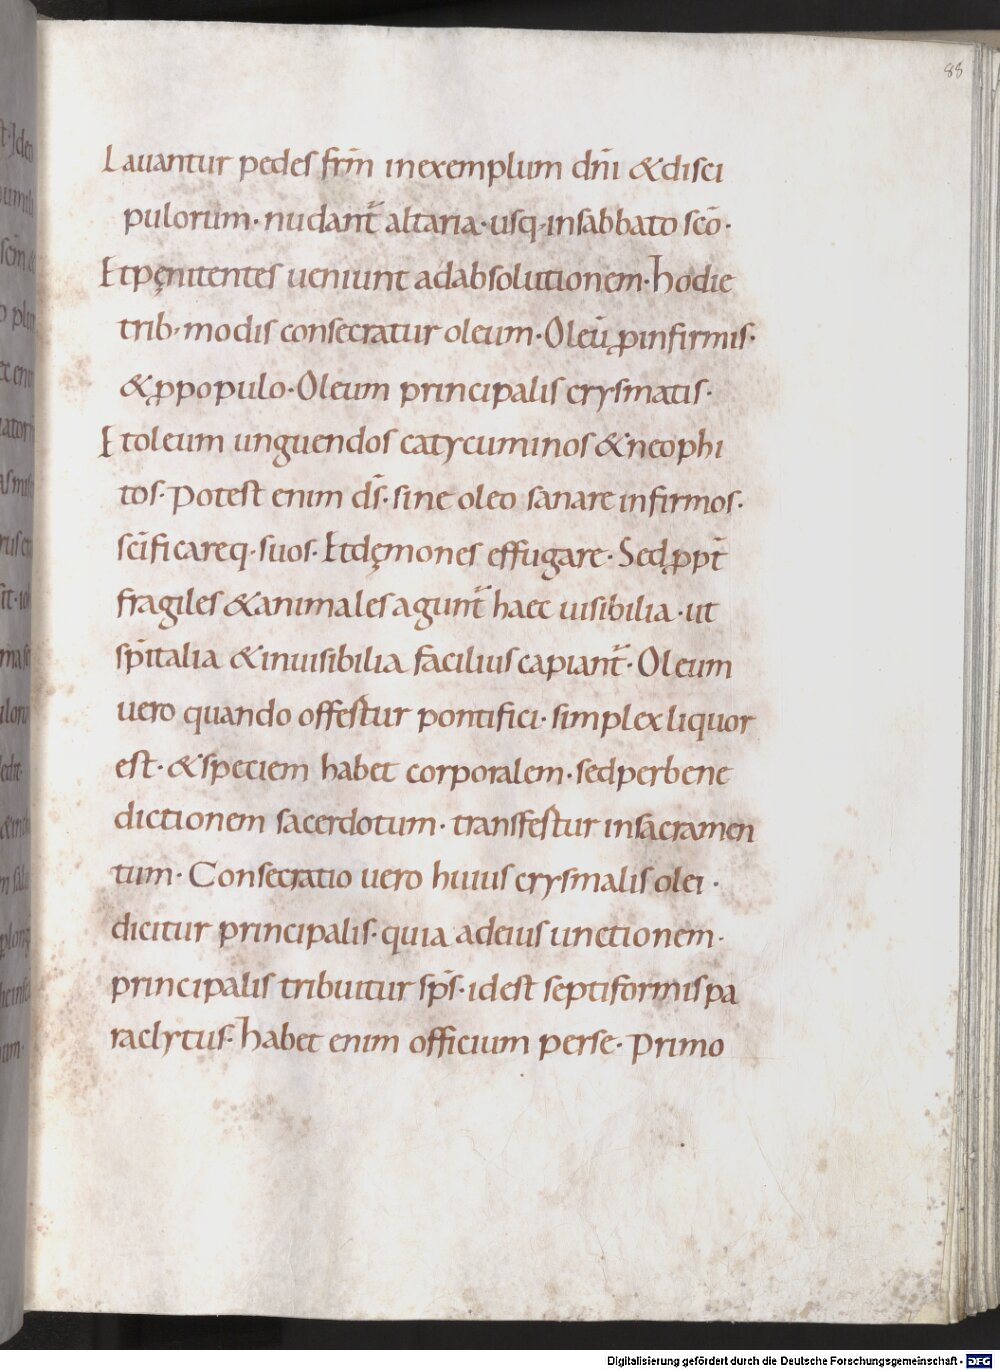 88
Lauantur pedes frm̄ in exemplum dnī & disci
pulorum· nudant̄ altaria· usq· in sabbato scō·
Et pęnitentes ueniunt ad absolutionem· hodie
trib· modis consecratur oleum· Oleū ꝓ infirmis·
& ꝓ populo· Oleum principalis crysmatis·
Et oleum unguendos catycuminos & neophi
tos· Potest enim ds̄· sine oleo sanare infirmos·
scīficareq· suos· Et dęmones effugare· Sed ꝓpt̄
fragiles & animales agunt̄ haec uisibilia· ut
spīitalia & inuisibilia facilius capiant̄· Oleum
uero quando offestur pontifici· simplex liquor
est· & speciem habet corporalem· sed per bene
dictionem sacerdotum· transfestur in sacramen
tum· Consecratio uero huius crysmalis olei·
dicitur principalis· quia ad eius unctionem·
principalis tribuitur sps̄· id est septiformis pa
raclytus· habet enim officium per se· Primo
Digitalisierung gefördert durch die Deutsche Forschungsgemeinschaft - DFG